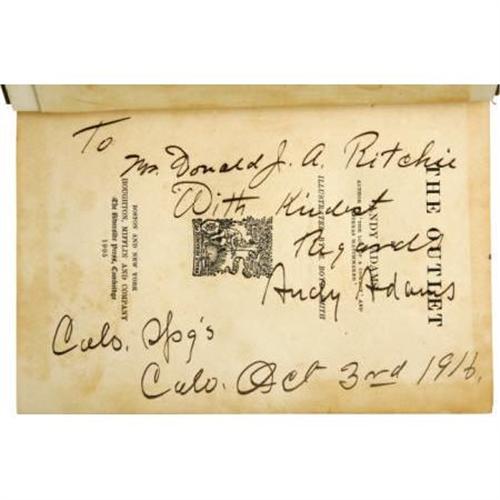 To
Mr. Donald J. A. Ritchie
With Kindest
Regards
Andy Adams
Colo. Spg's
Colo. Oct 3rd 1916.
THE OUTLET
BY
ANDY ADAMS
AUTHOR OF "THE LOG OF A COWBOY," AND
ILLUSTRATED BY E. BOYD SMITH
BOSTON AND NEW YORK
HOUGHTON, MIFFLIN AND COMPANY
The Riverside Press, Cambridge
1905